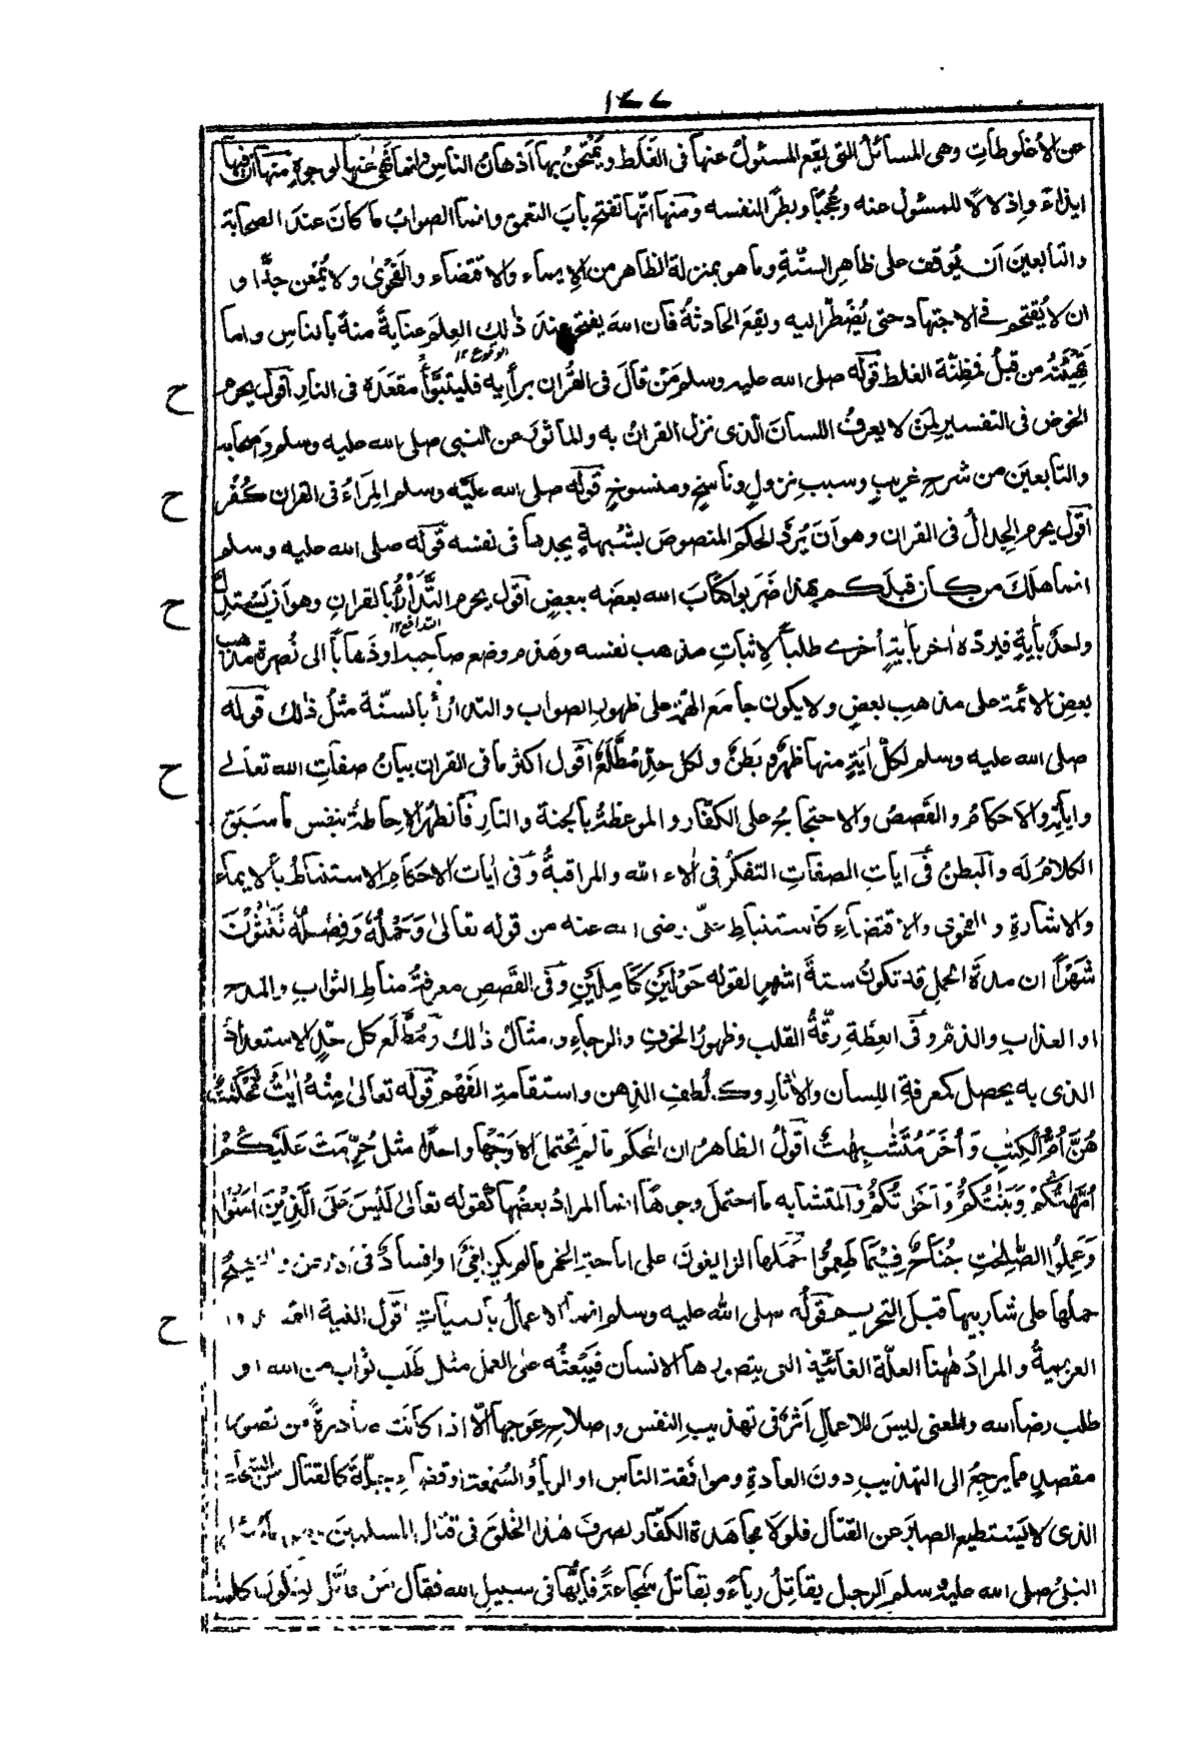 ١٣٧
عن الأغلوطات وهى المسائل التى يقع المسئول عنها فى الغلط ويمتحن بها أذهان الناس وانما نهى عنها لوجوه منها أن فيها
ايذاء واذلالا للمسئول عنه وعجبا وبطرا لنفسه ومنها أنها تفتح باب التعمق وانما الصواب ما كان عند الصحابة
والتابعين أن يوقف على ظاهر السنة وما هو بمنزلة الظاهر من الإيماء والاقتضاء والفحوى ولا يمعن جدا و
ان لا يقتحم فى الاجتهاد حتى يضطر اليه ويقع الحادثة فان الله يفتح عند ذلك العلم عناية منه بالناس واما
تهيئته من قبل فمظنة الغلط قوله صلى الله عليه وسلم من قال فى القران برأيه فليتبوأ مقعده فى النار أقول يحرم
الخوض فى التفسير لمن لا يعرف اللسان الذى نزل القران به والمأثور عن النبى صلى الله عليه وسلم وأصحابه
والتابعين من شرح غريب وسبب نزول وناسخ ومنسوخ قوله صلى الله عليه وسلم المراء فى القران كفر
أقول يحرم الجدال فى القران وهو أن يرد الحكم المنصوص بشبهة يجدها فى نفسه قوله صلى الله عليه وسلم
انما هلك من كان قبلكم بهذا ضربوا كتاب الله بعضه ببعض أقول يحرم التدارؤ بالقران وهو أن يستدل
واحد بأية فيرده اخر بأية أخرى طلبا لاثبات مذهب نفسه وهدم وضع صاحبه او ذهابا الى نصرة مذهب
بعض الائمة على مذهب بعض ولا يكون جامع الهمة على ظهور الصواب والتدارأ بالسنة مثل ذلك قوله
صلى الله عليه وسلم لكل اية منها ظهر وبطن ولكل حد مطلع أقول اكثر ما فى القران بيان صفات الله تعالى
واياته والاحكام والقصص والاحتجاج على الكفار والموعظة بالجنة والنار فالظهر الاحاطة بنفس ما سبق
الكلام له والبطن فى ايات الصفات التفكر فى الاء الله والمراقبة وفى ايات الاحكام الاستنباط بالايماء
والاشارة والفحوى والاقتضاء كاستنباط على رضى الله عنه من قوله تعالى وحمله وفصله ثلثون
شهرا ان مدة الحمل قد تكون ستة اشهر لقوله حولين كاملين وفى القصص معرفة مناط الثواب والمدح
او العذاب والذم وفى العظة رقة القلب وظهور الخوف والرجاء وامثال ذلك ومطلع كل حد الاستعداد
الذى به يحصل كمعرفة اللسان والاثار وكلطف الذهن واستقامة الفهم قوله تعالى منه ايت محكمت
هن أم الكتب وأخر متشبهت أقول الظاهر ان المحكم ما لم يحتمل الا وجها واحدا مثل حرمت عليكم
أمهتكم وبنتكم وأخوتكم والمتشابه ما احتمل وجوها انما المراد بعضها كقوله تعالى ليس على الذين امنوا
وعملوا الصلحت جناح فيما طعموا حملها الزايغون على اباحة الخمر ما لم يكن بغى او افساد فى الارض والصحيح
حملها على شاربيها قبل التحريم قوله صلى الله عليه وسلم انما الاعمال بالنيات أقول النية القصد و
العزيمة والمراد ههنا العلة الغائية التى يتصورها الانسان فيبعثه على العمل مثل طلب ثواب من الله او
طلب رضا الله والمعنى ليس للاعمال أثر فى تهذيب النفس واصلاح عوجها الا اذا كانت صادرة من تصور
مقصد مما يرجع الى التهذيب دون العادة وموافقة الناس او الرياء والسمعة او قضاء جبلة كالقتال من الشجاع
الذى لا يستطيع الصبر عن القتال فلولا مجاهدة الكفار لصرف هذا الخلق فى قتال المسلمين
النبى صلى الله عليه وسلم الرجل يقاتل رياء ويقاتل شجاعة فأيها فى سبيل الله فقال من قاتل ليكون كلمة
الوقوع ١٢
التدافع ١٢
ح
ح
ح
ح
ح